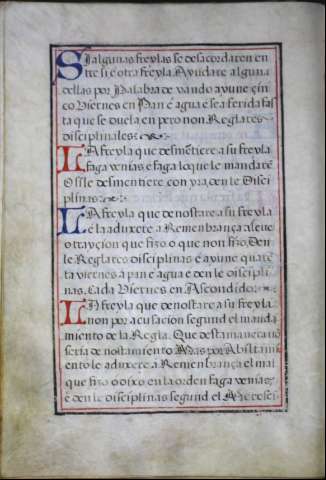 Si algunas freylas se desacordaren en
tre si e otra freyla Ayudare alguna
dellas por Palabra de vando ayune çin
co Viernes en Pan e agua e sea ferida fas
ta que se duela en pero non Reglares
disciplinales
La freyla que desmẽtiere a su freyla
faga venias e faga lo que le mandarẽ
O si le desmentiere con yra, den le Disci
plinas
La freyla que denostare a su freyla
e la aduxere a Remenbrança aleve
o trayçion que fizo o que non fizo, Den
le Reglares disciplinas e ayune quarẽ
ta viernes a pan e agua e den le disçipli
nas, Cada Viernes en Ascondido
La freyla que denostare a su freyla
non por acusaçion segund el manda
miento de la Regla. Que desta manera no
seria denostamiento Mas por
ento le aduxere a Remenbrança el mal
que fizo o dixo en la orden faga venias
e den le disçiplinas segund el